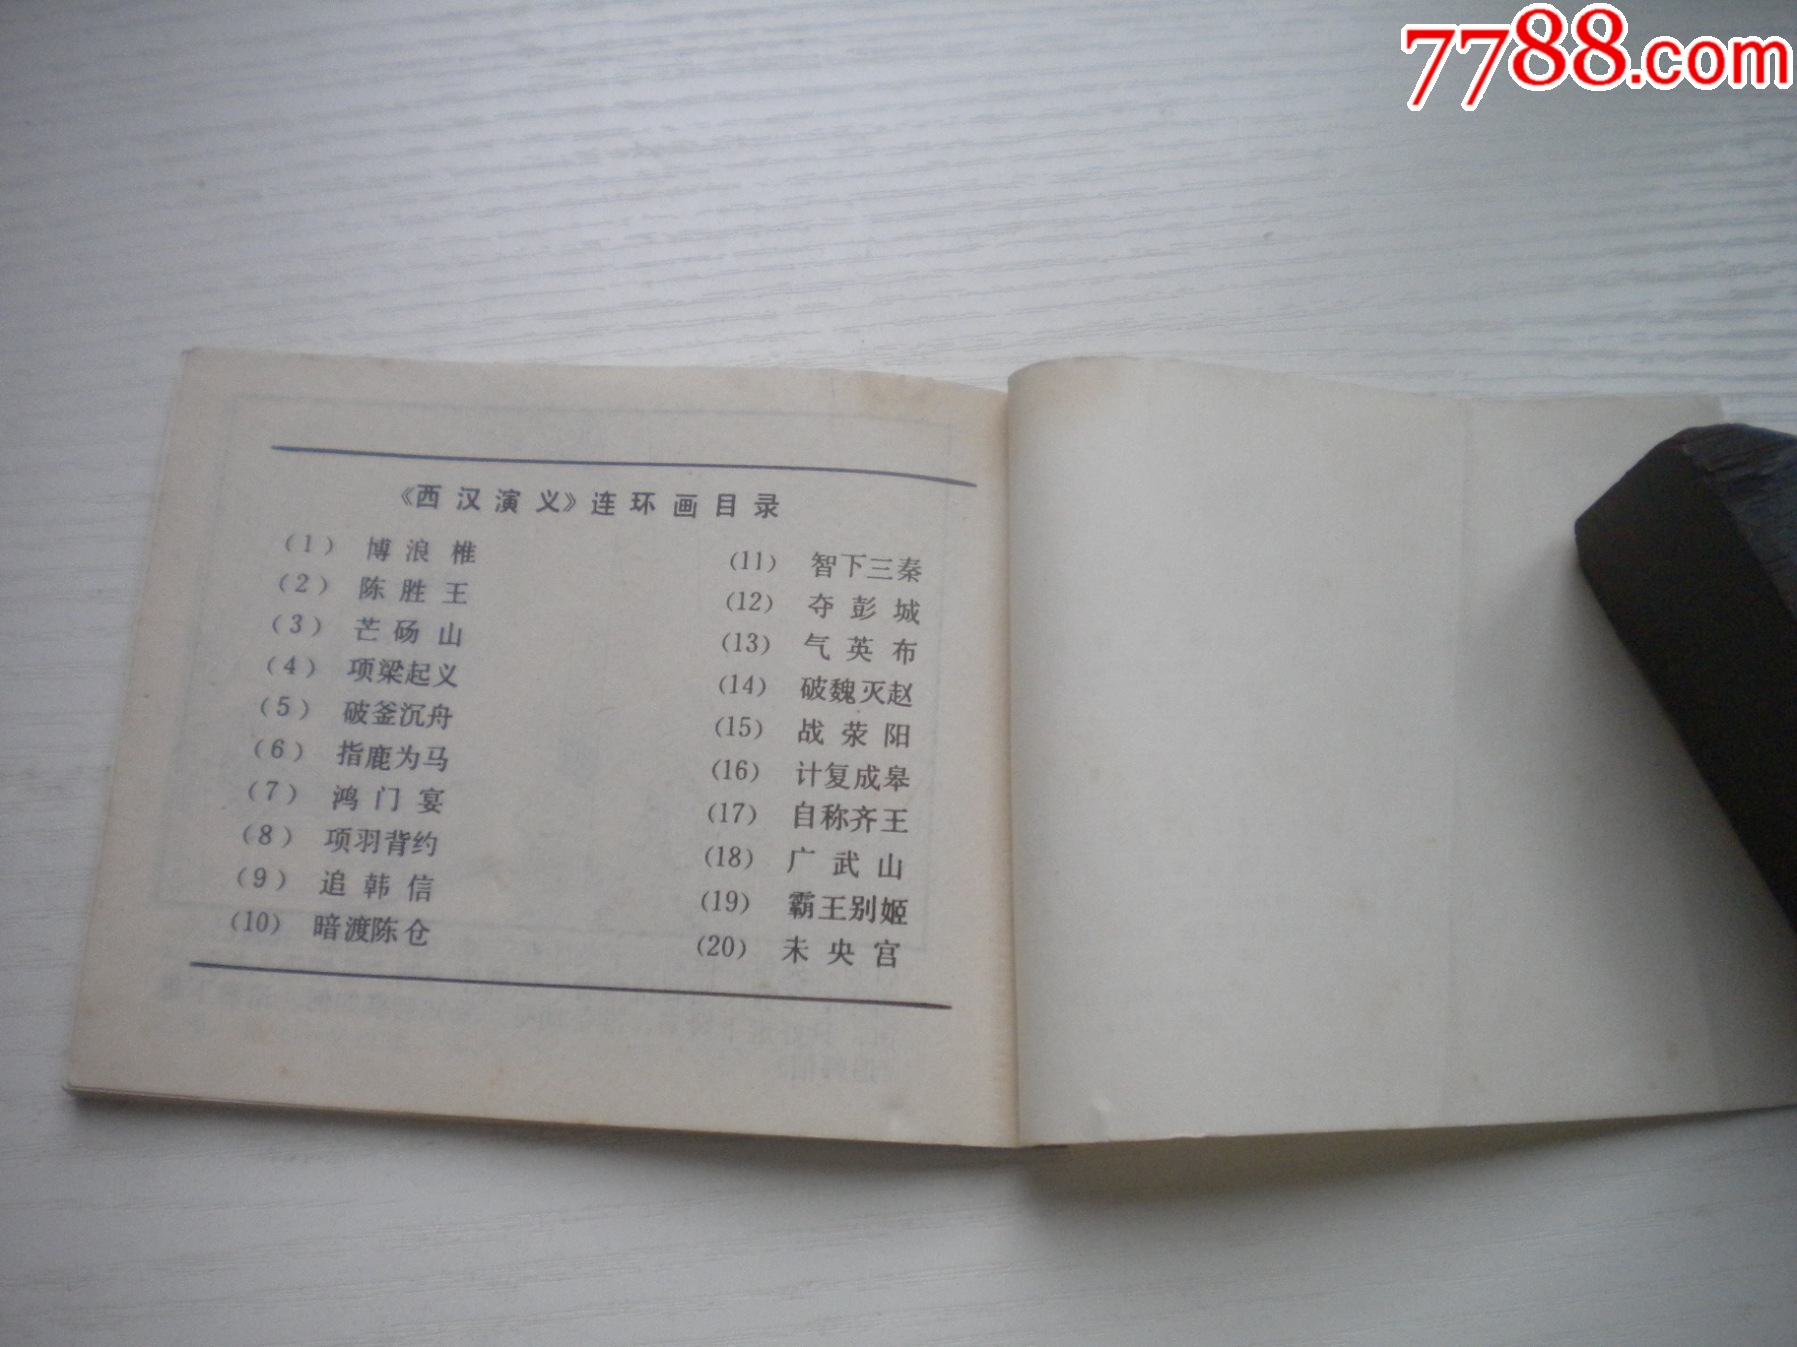 7788.com
《西汉演义》连环画目录
(1) 博浪椎
(2) 陈胜王
(3) 芒砀山
(4) 项梁起义
(5) 破釜沉舟
(6) 指鹿为马
(7) 鸿门宴
(8) 项羽背约
(9) 追韩信
(10) 暗渡陈仓
(11) 智下三秦
(12) 夺彭城
(13) 气英布
(14) 破魏灭赵
(15) 战荥阳
(16) 计复成皋
(17) 自称齐王
(18) 广武山
(19) 霸王别姬
(20) 未央宫